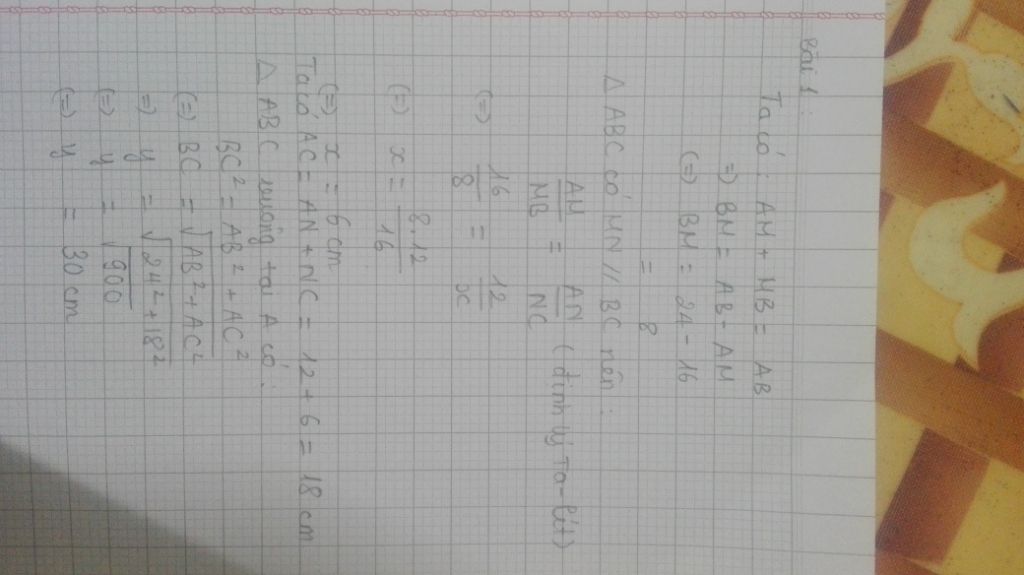 Bài 1:
Ta có: AM + MB = AB
=) BM = AB - AM
(=) BM = 24 - 16
= 8
Δ ABC có MN // BC nên:
AM/MB = AN/NC (định lý Ta-lét)
(=) 16/8 = 12/x
(=) x = 8.12/16
(=) x = 6 cm
Ta có AC = AN + NC = 12 + 6 = 18 cm
Δ ABC vuông tại A có:
BC² = AB² + AC²
(=) BC = √AB² + AC²
=) y = √24² + 18²
(=) y = √900
(=) y = 30 cm